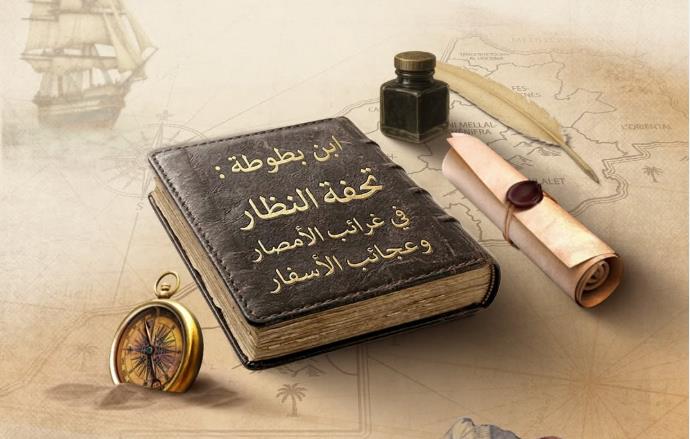 ابن بطوطة :
تحفة النظار
في غرائب الأمصار
وعجائب الأسفار
FES-
L'ORIENTAL